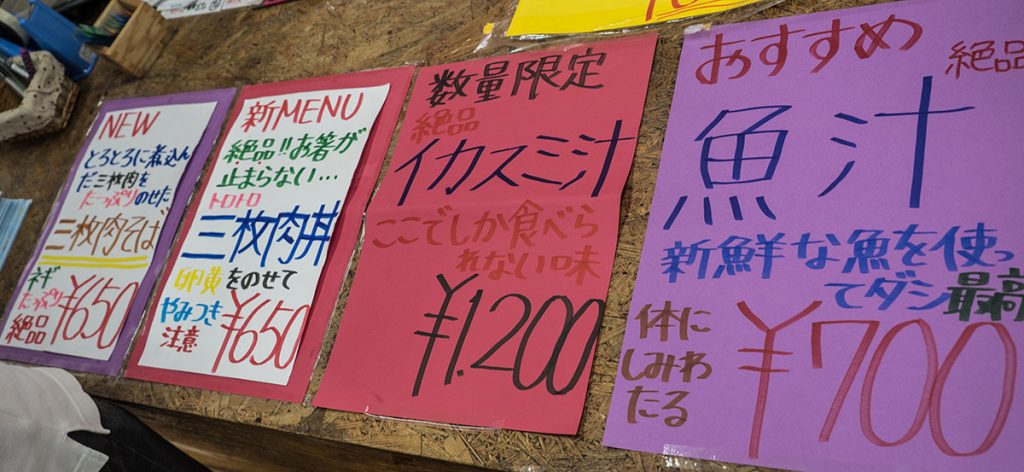 NEW
とろとろに煮込ん
だ三枚肉を
たっぷりのせた
三枚肉そば
ネギ
たっぷり
絶品
¥650
新MENU
絶品!!お箸が
止まらない…
トロトロ
三枚肉丼
卵黄をのせて
やみつき
注意
¥650
数量限定
絶品
イカスミ汁
ここでしか食べら
れない味
¥1.200
おすすめ
絶品
魚汁
新鮮な魚を使っ
てダシ最高
体に
しみわ
たる
¥700